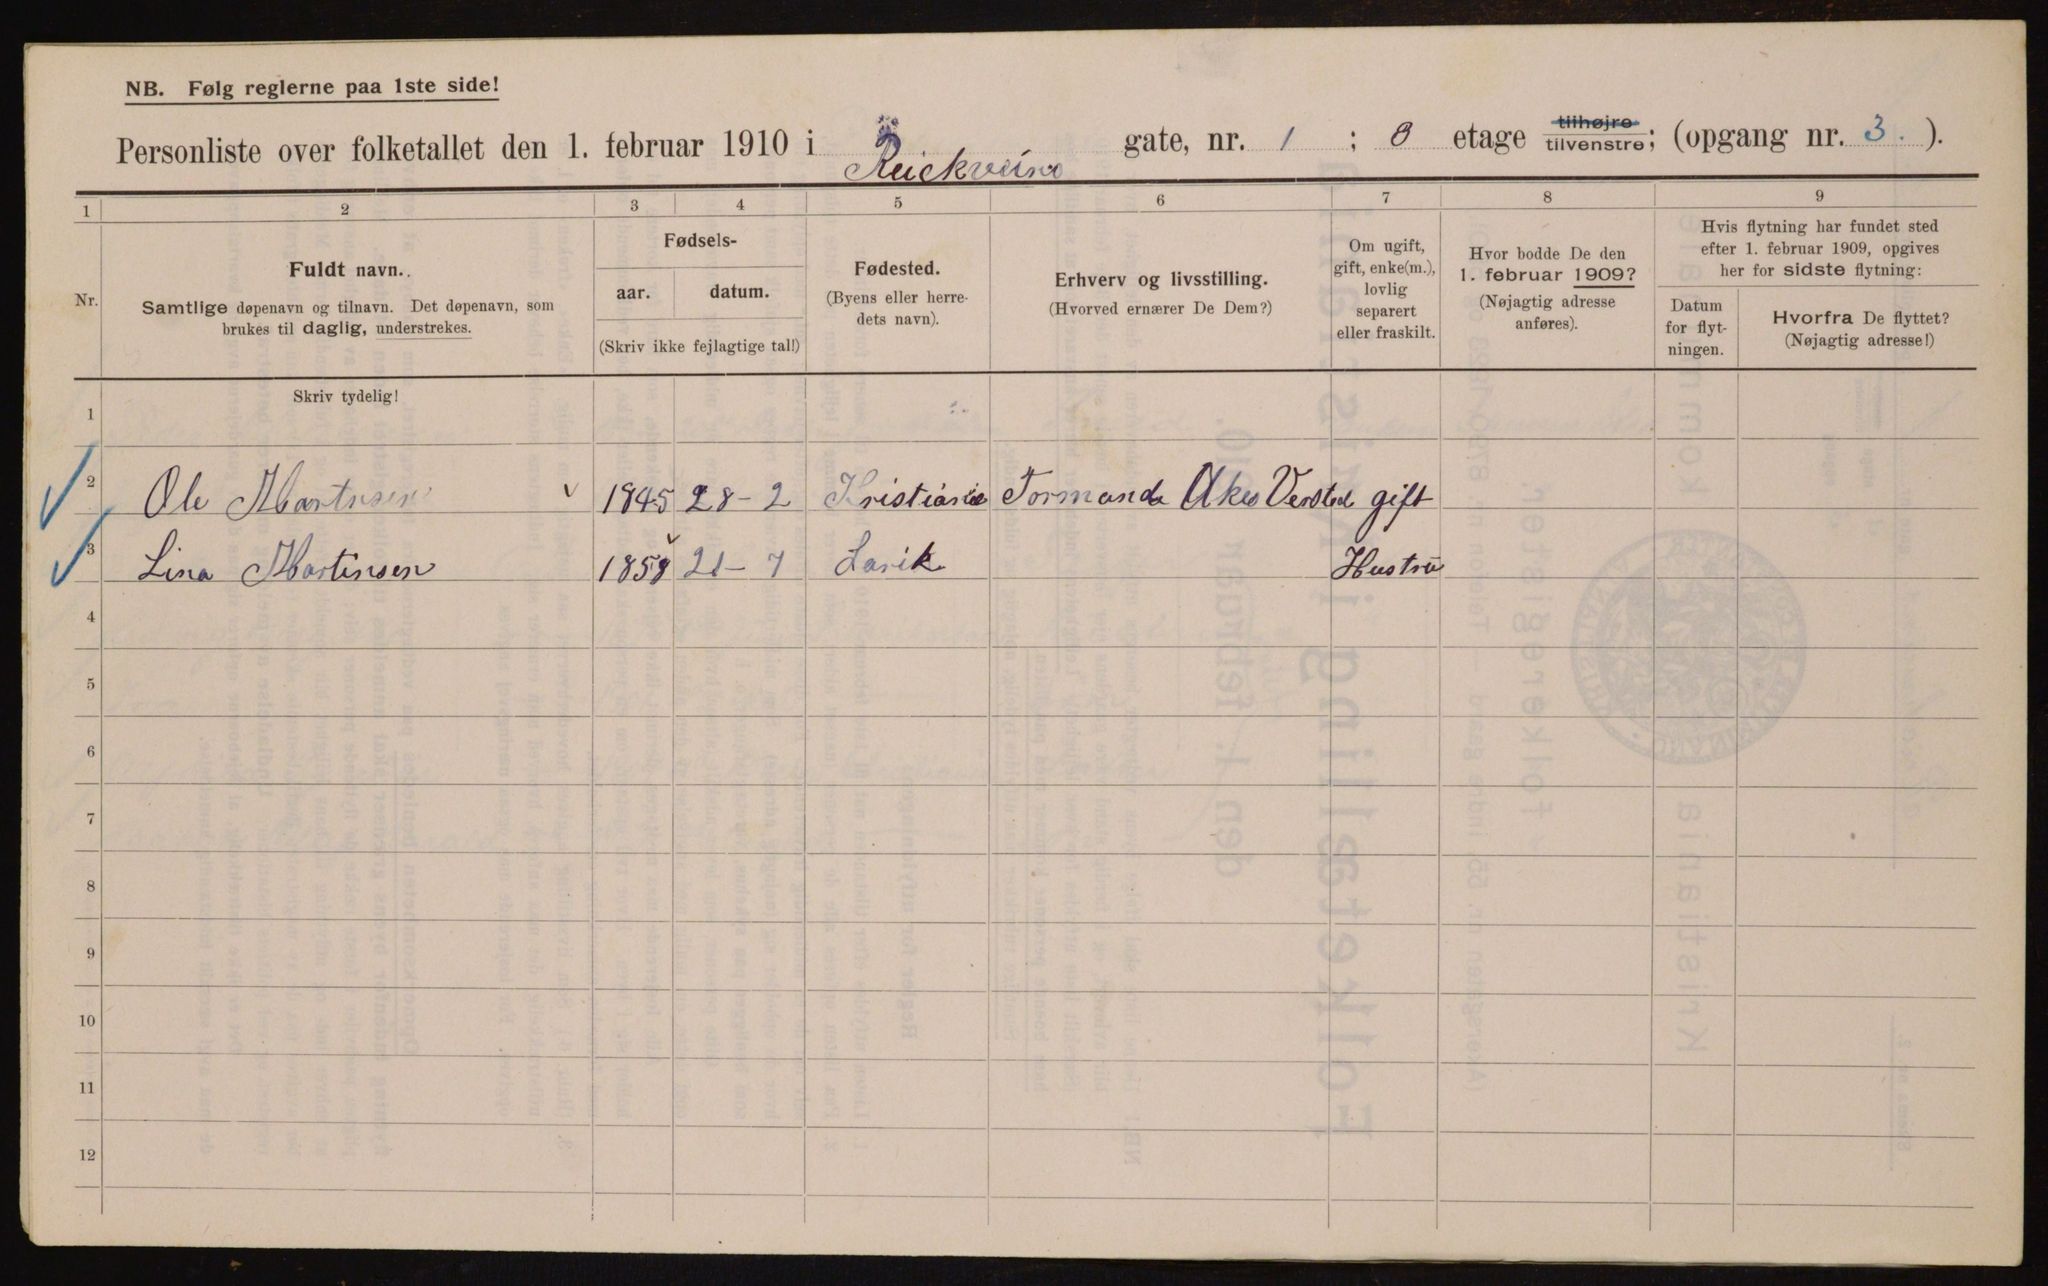 NB. Følg reglerne paa 1ste side!
Personliste over folketallet den 1. februar 1910 i Reickveins gate, nr. 1 ; 3 etage tilhøjre tilvenstre; (opgang nr. 3. ).
1 2 3 4 5 6 7 8 9
Nr.
Fuldt navn.
Samtlige døpenavn og tilnavn. Det døpenavn, som
brukes til daglig, understrekes.
Fødsels-
aar. datum.
(Skriv ikke fejlagtige tal!)
Fødested.
(Byens eller herre-
dets navn).
Erhverv og livsstilling.
(Hvorved ernærer De Dem?)
Om ugift,
gift, enke(m.),
lovlig
separert
eller fraskilt.
Hvor bodde De den
1. februar 1909?
(Nøjagtig adresse
anføres).
Hvis flytning har fundet sted
efter 1. februar 1909, opgives
her for sidste flytning:
Datum
for flyt-
ningen.
Hvorfra De flyttet?
(Nøjagtig adresse!)
Skriv tydelig!
1
2 Ole Martnsen 1845 28-2 Kristiania Formand Akes Versted gift
3 Lina Martinsen 1858 21-7 Larik Hustru
4
5
6
7
8
9
10
11
12